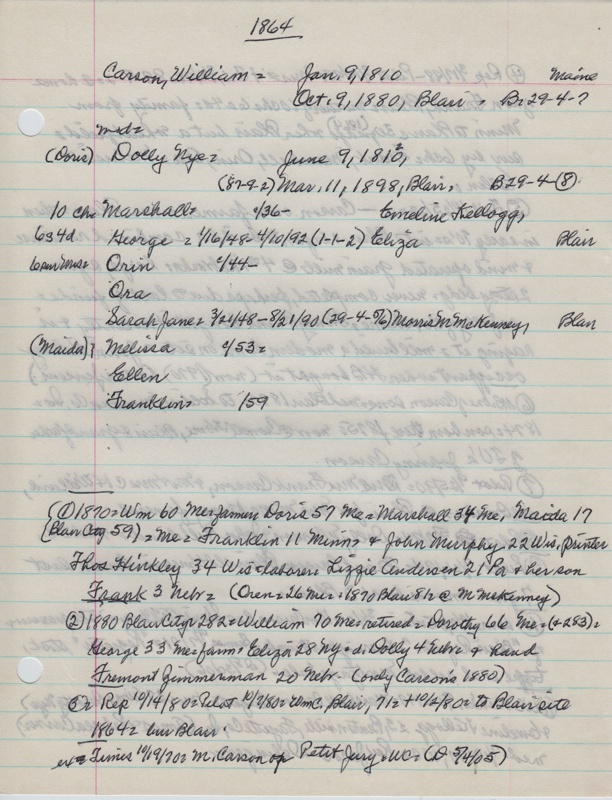 1864
Carson, William = Jan. 9, 1810 Maine
Oct. 9, 1880, Blair, B 29-4-7
mxd=
(Doris) Dolly Nye= June 9, 1810,
(87-9-2) Mar. 11, 1898, Blair, B29-4-(8)
10 ch: Marshall= c/36- Emeline Kellogg,
6s4d George = 1/16/48-4/10/92 (1-1-2) Eliza Blair
Orin c/44-
Ora
Sarah Jane= 3/21/48-8/21/90 (29-4-5/6) Morris M. McKenney, Blair
(Maida)} Melissa c/53=
Ellen
Franklin= /59
(1) 1870= Wm 60 Me=farmer Doris 57 Me= Marshall 34 Me, Maida 17
(Blair City 59) = Me= Franklin 11 Minn= & John Murphy 22 Wis, printer
Thos Hinkley 34 Wis=laborer= Lizzie Andersen 21 Pa & her son
Frank 3 Nebr= (Oren=26 Me= 1870 Blair 81= @ M McKenney)
(2) 1880 Blair City= 282= William 70 Me=retired= Dorothy 66 Me= (+283)=
George 33 Me=farm= Eliza 28 NY= d: Dolly 4 Nebr & hand
Fremont Zimmerman 20 Nebr- (only Carson's 1880)
Or Rep 10/14/80= Pilot 10/7/80= Wm C, Blair, 71= +10/2/80= to Blair site
1864= bur Blair.
ex= Times 10/19/70= M. Carson op Petit Jury, WC= (D 5/4/05)